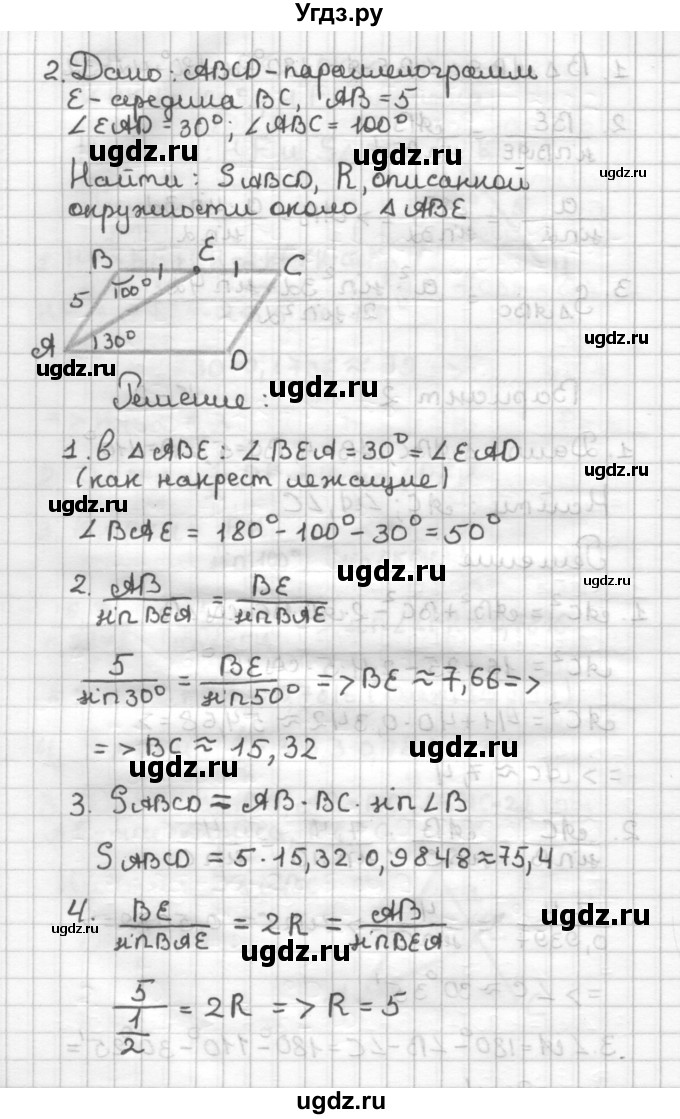 Угдз.ру
2. Дано: ABCD - параллелограмм
E - середина BC, AB = 5
∠EAD = 30°; ∠ABC = 100°
ugdz.ru ugdz.ru ugdz.ru
Найти: SABCD, R, описанной
окружности около △ABE
B E C
5 100°
A 30° D
ugdz.ru ugdz.ru ugdz.ru
Решение:
1. в △ABE: ∠BEA = 30° = ∠EAD
(как накрест лежащие)
ugdz.ru ugdz.ru
∠BAE = 180° - 100° - 30° = 50°
ugdz.ru ugdz.ru
2. AB/sin BEA = BE/sin BAE
5/sin 30° = BE/sin 50° => BE ≈ 7,66 =>
=> BC ≈ 15,32
ugdz.ru ugdz.ru
3. SABCD = AB · BC · sin ∠B
SABCD = 5 · 15,32 · 0,9848 ≈ 75,4
4. BE/sin BAE = 2R = AB/sin BEA
ugdz.ru ugdz.ru ugdz.ru
5/(1/2) = 2R => R = 5
ugdz.ru